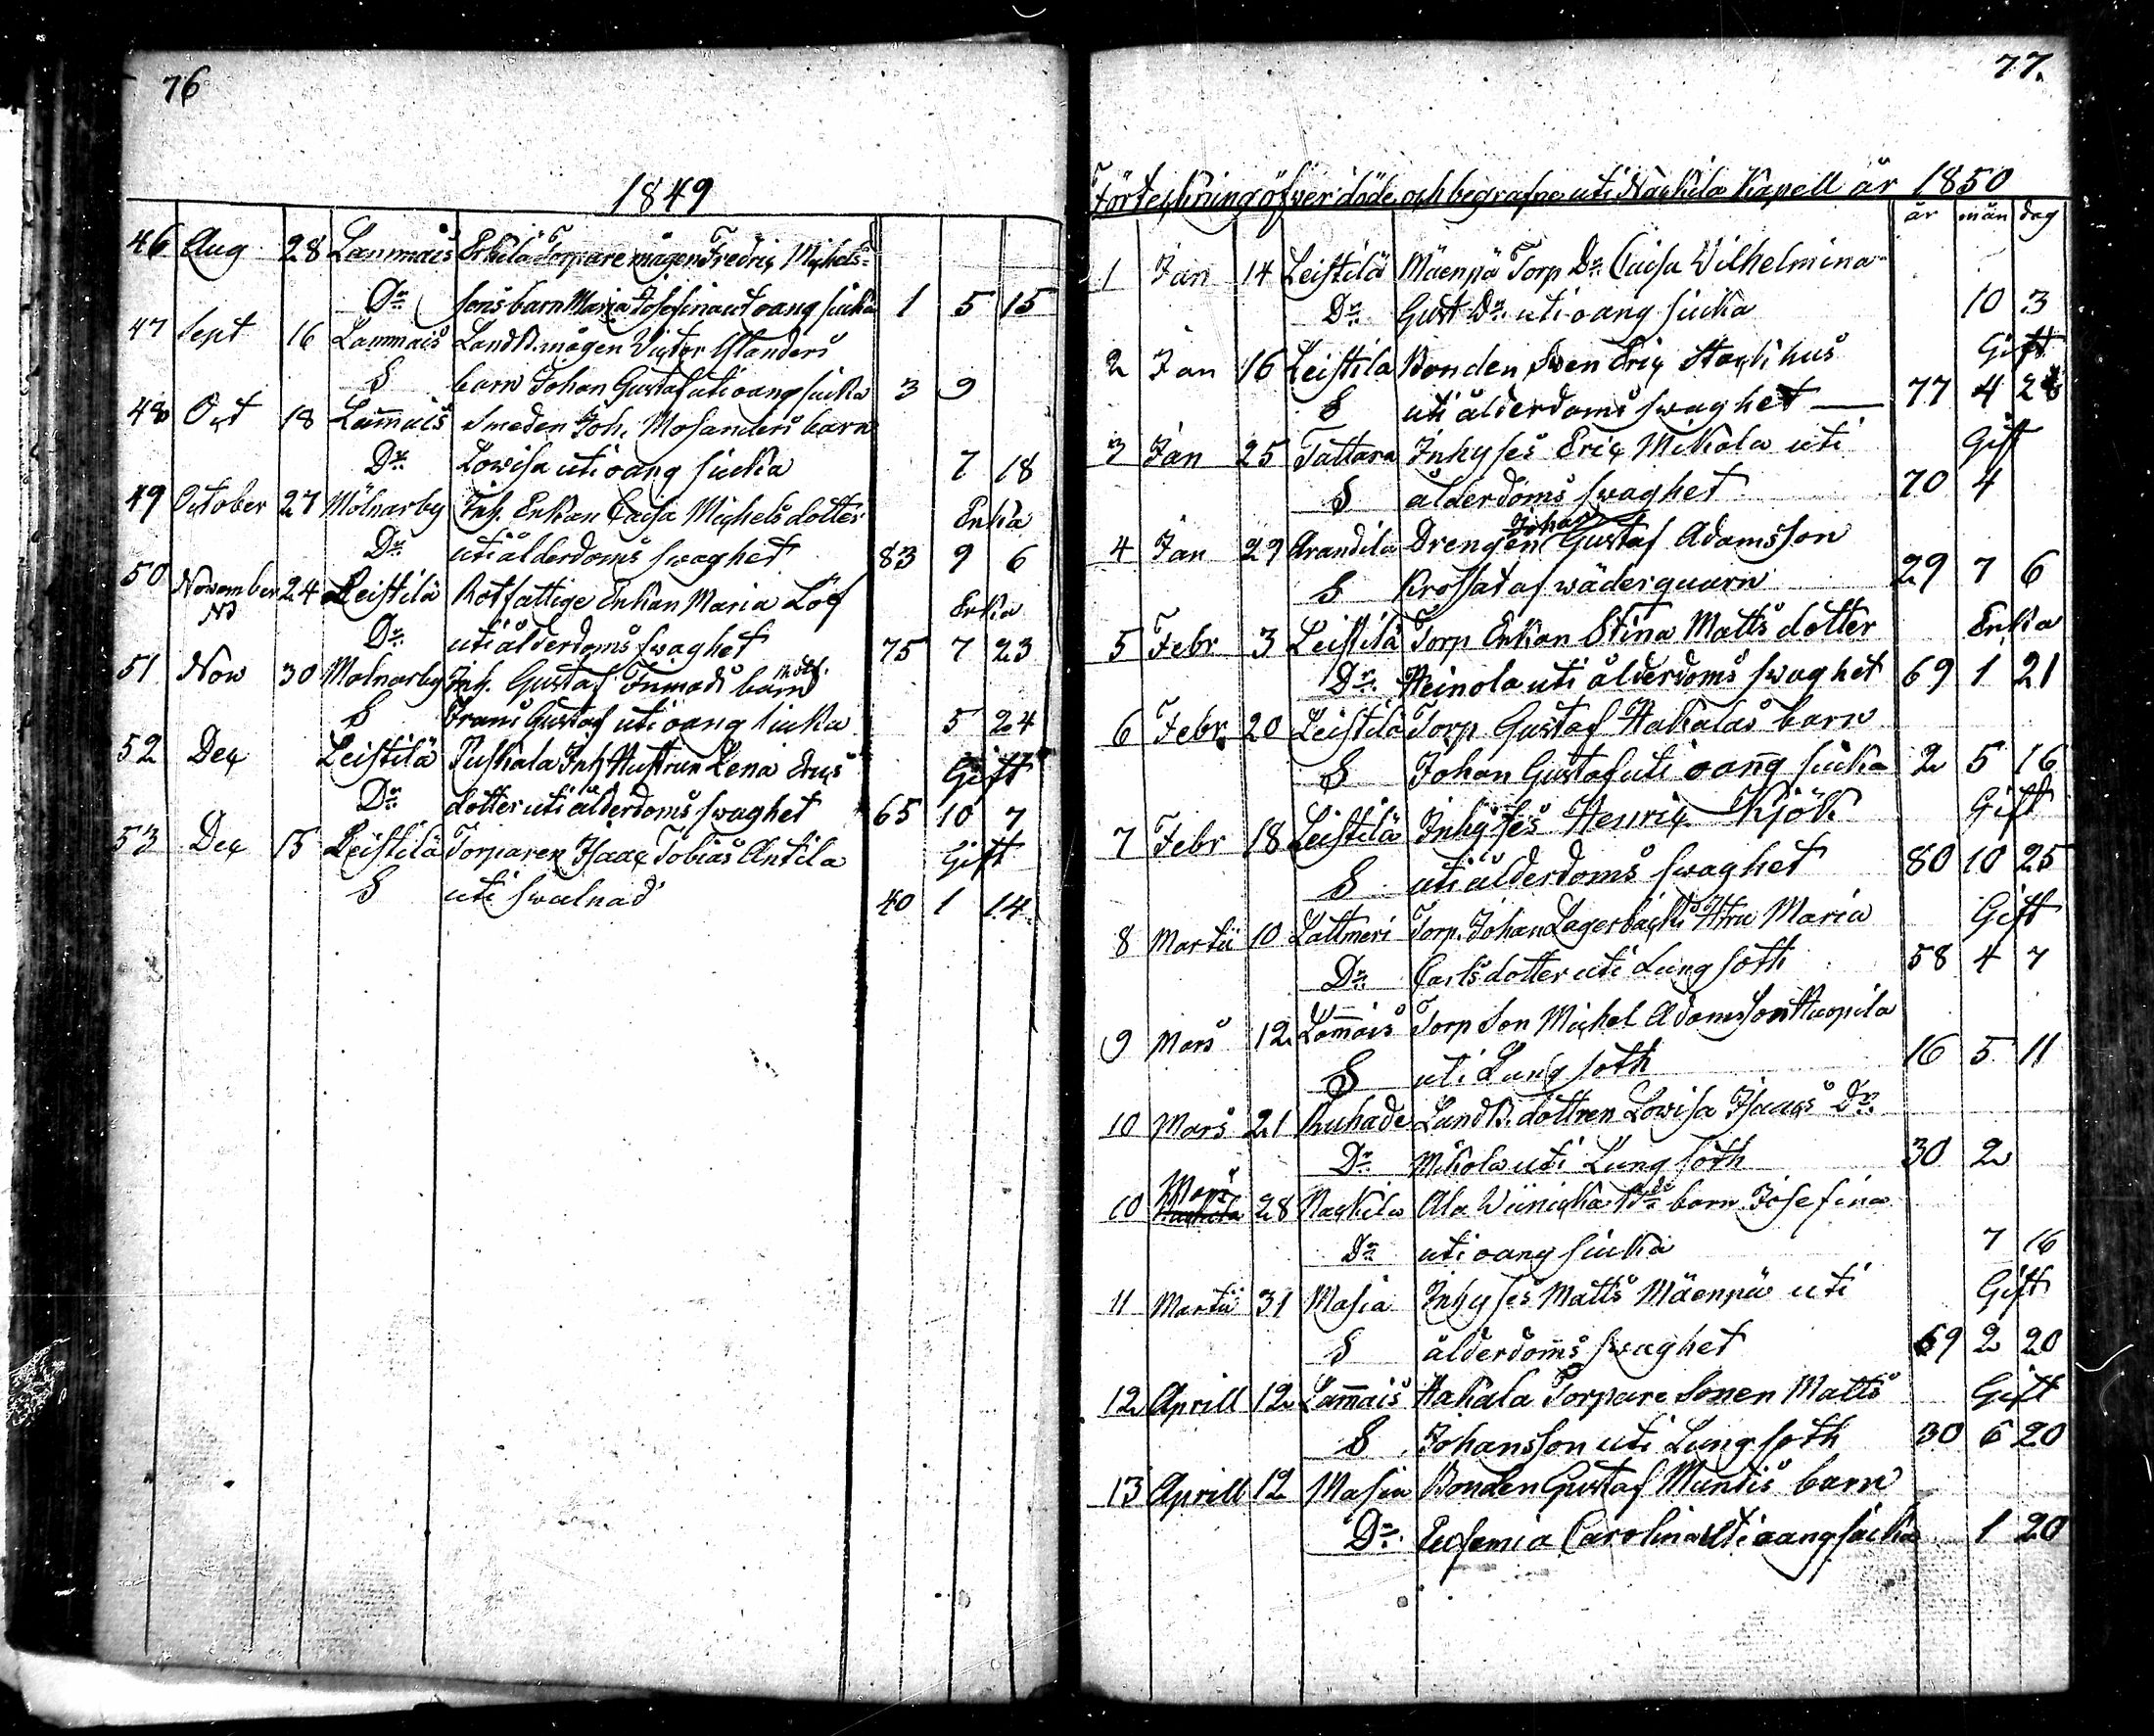 76
1849
46 Aug 28 Lammais Erkilä Torpare mågen Fredric Michels-
Dr sons barn Maria Josefina uti oang siuka 1 5 15
47 Sept 16 Lammais Landb. mågen Victor Ylanders
S barn Johan Gustaf uti oang siuka 3 9
48 Oct 18 Lam̄ais Smeden Joh. Mosanders barn
Dr Lowisa uti oang siuka 7 18
49 October 27 Mölnarby Inh. Enkan Caisa Michels dotter Enka
Dr uti ålderdoms swaghet 83 9 6
50 November 24 Leistilä Rotfattige Enkan Maria Löf Enka
Dr uti ålderdoms swaghet 75 7 23
51 Now 30 Molnarby Inh. Gustaf barn
S Frans Gustaf uti oang siuka 5 24
52 Dec Leistilä Puskala Inh Hustrun Lena Erics Gift
Dr dotter uti ålderdoms swaghet 65 10 7
53 Dec 15 Leistilä Torparen Isaac Tobias Antila Gift
S uti swalnad 40 1 14
77.
Förteckning öfwer döde och begrafne uti Nackila Kapell år 1850
år mån dag
1 Jan 14 Leistilä Mäenpä Torp Dr Caisa Wilhelmina
Dr Gust Dr uti oang siuka 10 3
2 Jan 16 Leistila Bonden Swen Eric Stackhus Gift
S uti ålderdoms swaghet — 77 4 28
3 Jan 25 Tattara Inhyses Eric Mikola uti Gift
S ålderdoms swaghet 70 4
Johan
4 Jan 29 Arandila Drengen Gustaf Adamsson
S Krossat af wäderquarn 29 7 6
5 Febr 3 Leistilä Torp Enkan Stina Matts dotter Enka
Dr Heinola uti ålderdoms swaghet 69 1 21
6 Febr. 20 Leistilä Torp Gustaf Hakalas barn
S Johan Gustaf uti oang siuka 2 5 16
7 Febr 18 Leistilä Inhyses Henric Kjök Gift
S uti ålderdoms swaghet 80 10 25
8 Martii 10 Lattmeri Torp. Johan Lagerbäcks Hru Maria Gift
Dr Carlsdotter uti Lungsoth 58 4 7
9 Mars 12 Lam̄ais Torp Son Michel Adamsson Huopila
S uti Lungsoth 16 5 11
10 Mars 21 Ruhade Landb. dottren Lowisa Isaacs Dr
Dr Mikola uti Lungsoth 30 2
Mars
10 Nackila 28 Nackila Ala Wiinickka barn Josefina
Dr uti oang siuka 7 16
11 Martii 31 Masia Inhyses Matts Mäenpä uti Gift
S ålderdoms swaghet 69 2 20
12 Aprill 12 Lam̄ais Hakala Torpare Sonen Matts Gift
S Johansson uti Lungsoth 30 6 20
13 Aprill 12 Masia Bonden Gustaf Muntis barn
Dr Eufemia Carolina uti oang siuka 1 20